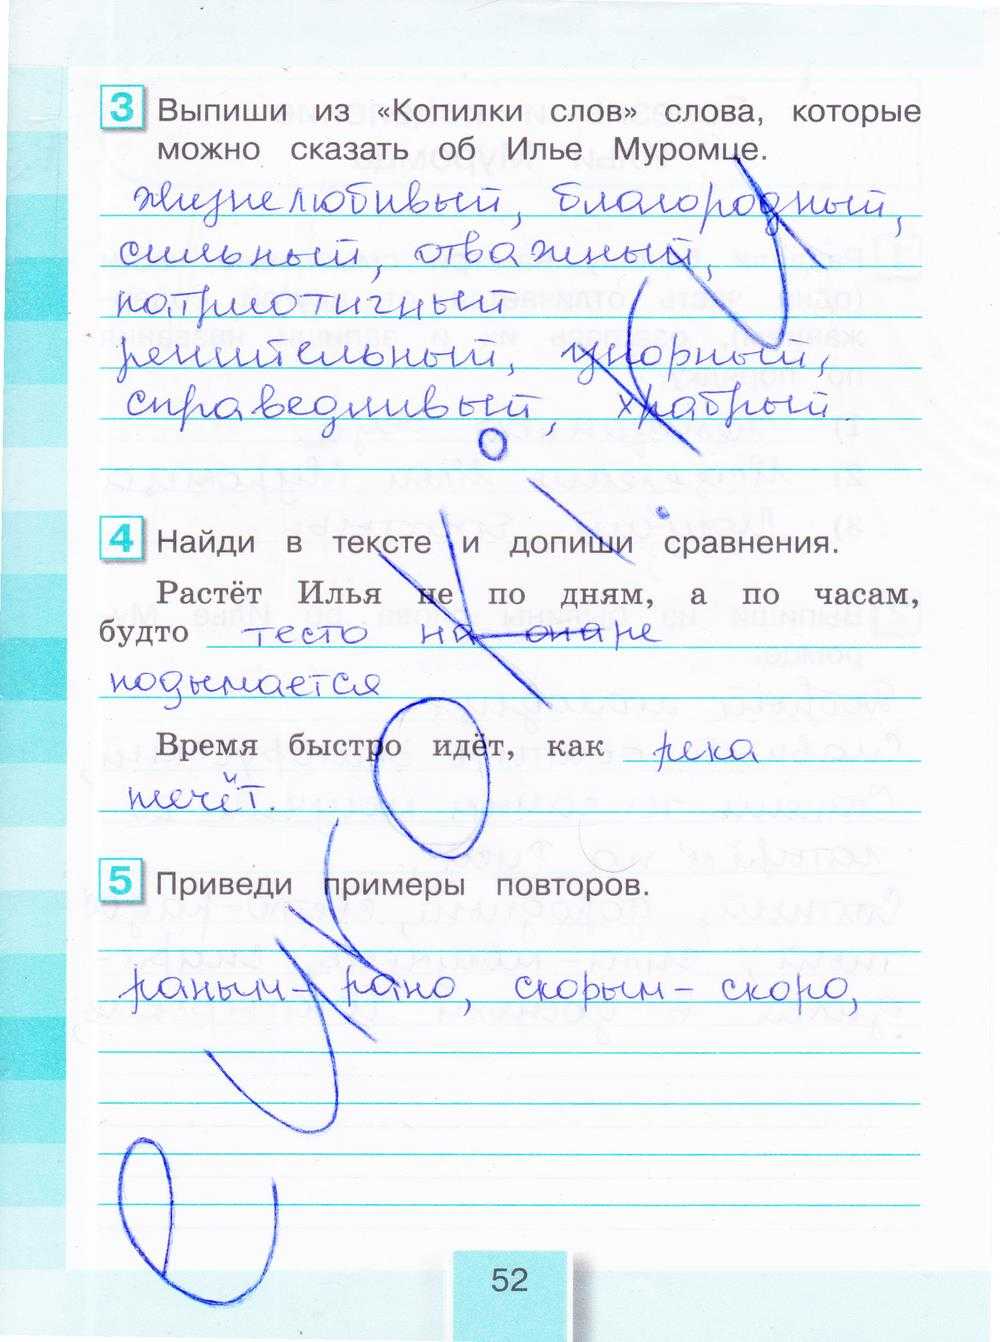 3 Выпиши из «Копилки слов» слова, которые
можно сказать об Илье Муромце.
жизнелюбивый, благородный,
сильный, отважный,
патриотичный
решительный, упорный,
справедливый, храбрый.
4 Найди в тексте и допиши сравнения.
Растёт Илья не по дням, а по часам,
будто тесто на опаре
подымается
Время быстро идёт, как река
течёт.
5 Приведи примеры повторов.
раным-рано, скорым-скоро,
еуроки.ру
52